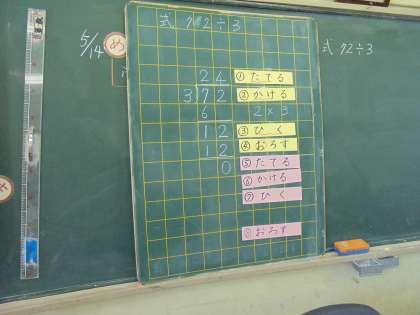 5/14 め
式 72÷3
式 72÷3
24 ①たてる
3)72 ②かける
6 2×3
12 ③ひく
12 ④おろす
0 ⑤たてる
⑥かける
⑦ひく
おろす